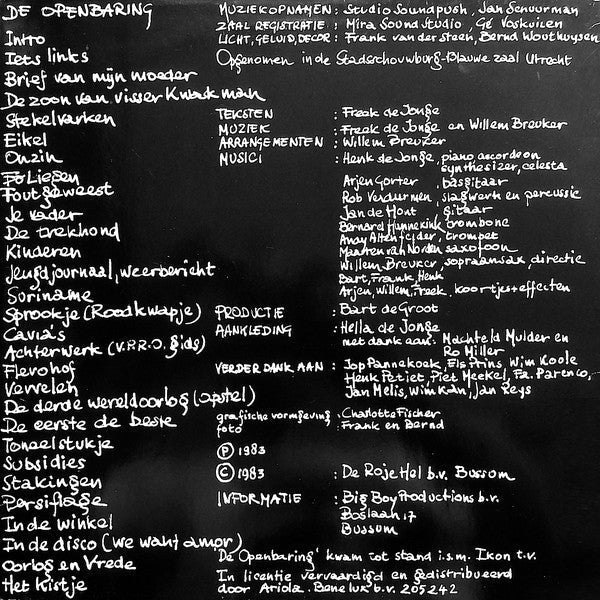 DE OPENBARING
Intro
Iets links
Brief van mijn moeder
De zoon van visser Kwakman
Stekelvarken
Eikel
Onzin
Foutgeweest
Je vader
De trekhond
Kinderen
Jeugdjournaal, weerbericht
Suriname
Sprookje (Roodkapje)
Cavia's
Achterwerk (V.P.R.O. gids)
Flevohof
Vervelen
De derde wereldoorlog (opstel)
De eerste de beste
Toneelstukje
Subsidies
Stakingen
Persiflage
In de winkel
In de disco (we want amor)
Oorlog en Vrede
Het kistje
MUZIEKOPNAMEN: Studio Soundpush, Jan Schuurman
ZAAL REGISTRATIE: Mira Sound Studio, Gé Voskuilen
LICHT, GELUID, DECOR: Frank van der Steen, Bernd Wouthuysen
Opgenomen in de Stadsschouwburg-Blauwe zaal Utrecht
TEKSTEN : Freek de Jonge
MUZIEK : Freek de Jonge en Willem Breuker
ARRANGEMENTEN : Willem Breuker
MUSICI : Henk de Jonge, piano, accordeon
synthesizer, celesta
Arjen Gorter, basgitaar
Rob Verdurmen, slagwerk en percussie
Jan de Hont, gitaar
Bernard Hunnekink, trombone
Andy Altenfelder, trompet
Maarten van Norden, saxofoon
Willem Breuker, sopraansax, directie
Bart, Frank, Henk
Arjen, Willem, Freek, koortjes + effecten
PRODUCTIE : Bart de Groot
AANKLEDING : Hella de Jonge
met dank aan: Machteld Mulder en
Ro Miller
VERDER DANK AAN : Jop Pannekoek, Els Prins, Wim Koole
Henk Petiet, Piet Meekel, Fa. Parenco,
Jan Melis, Wim Kan, Jan Reys
grafische vormgeving : Charlotte Fischer
foto : Frank en Bernd
Ⓟ 1983
© 1983 : De Roje Hel b.v. Bussum
INFORMATIE : Big Boy Productions b.v.
Boslaan 17
Bussum
'De Openbaring' kwam tot stand i.s.m. Ikon t.v.
In licentie vervaardigd en gedistribueerd
door Ariola Benelux b.v. 205242